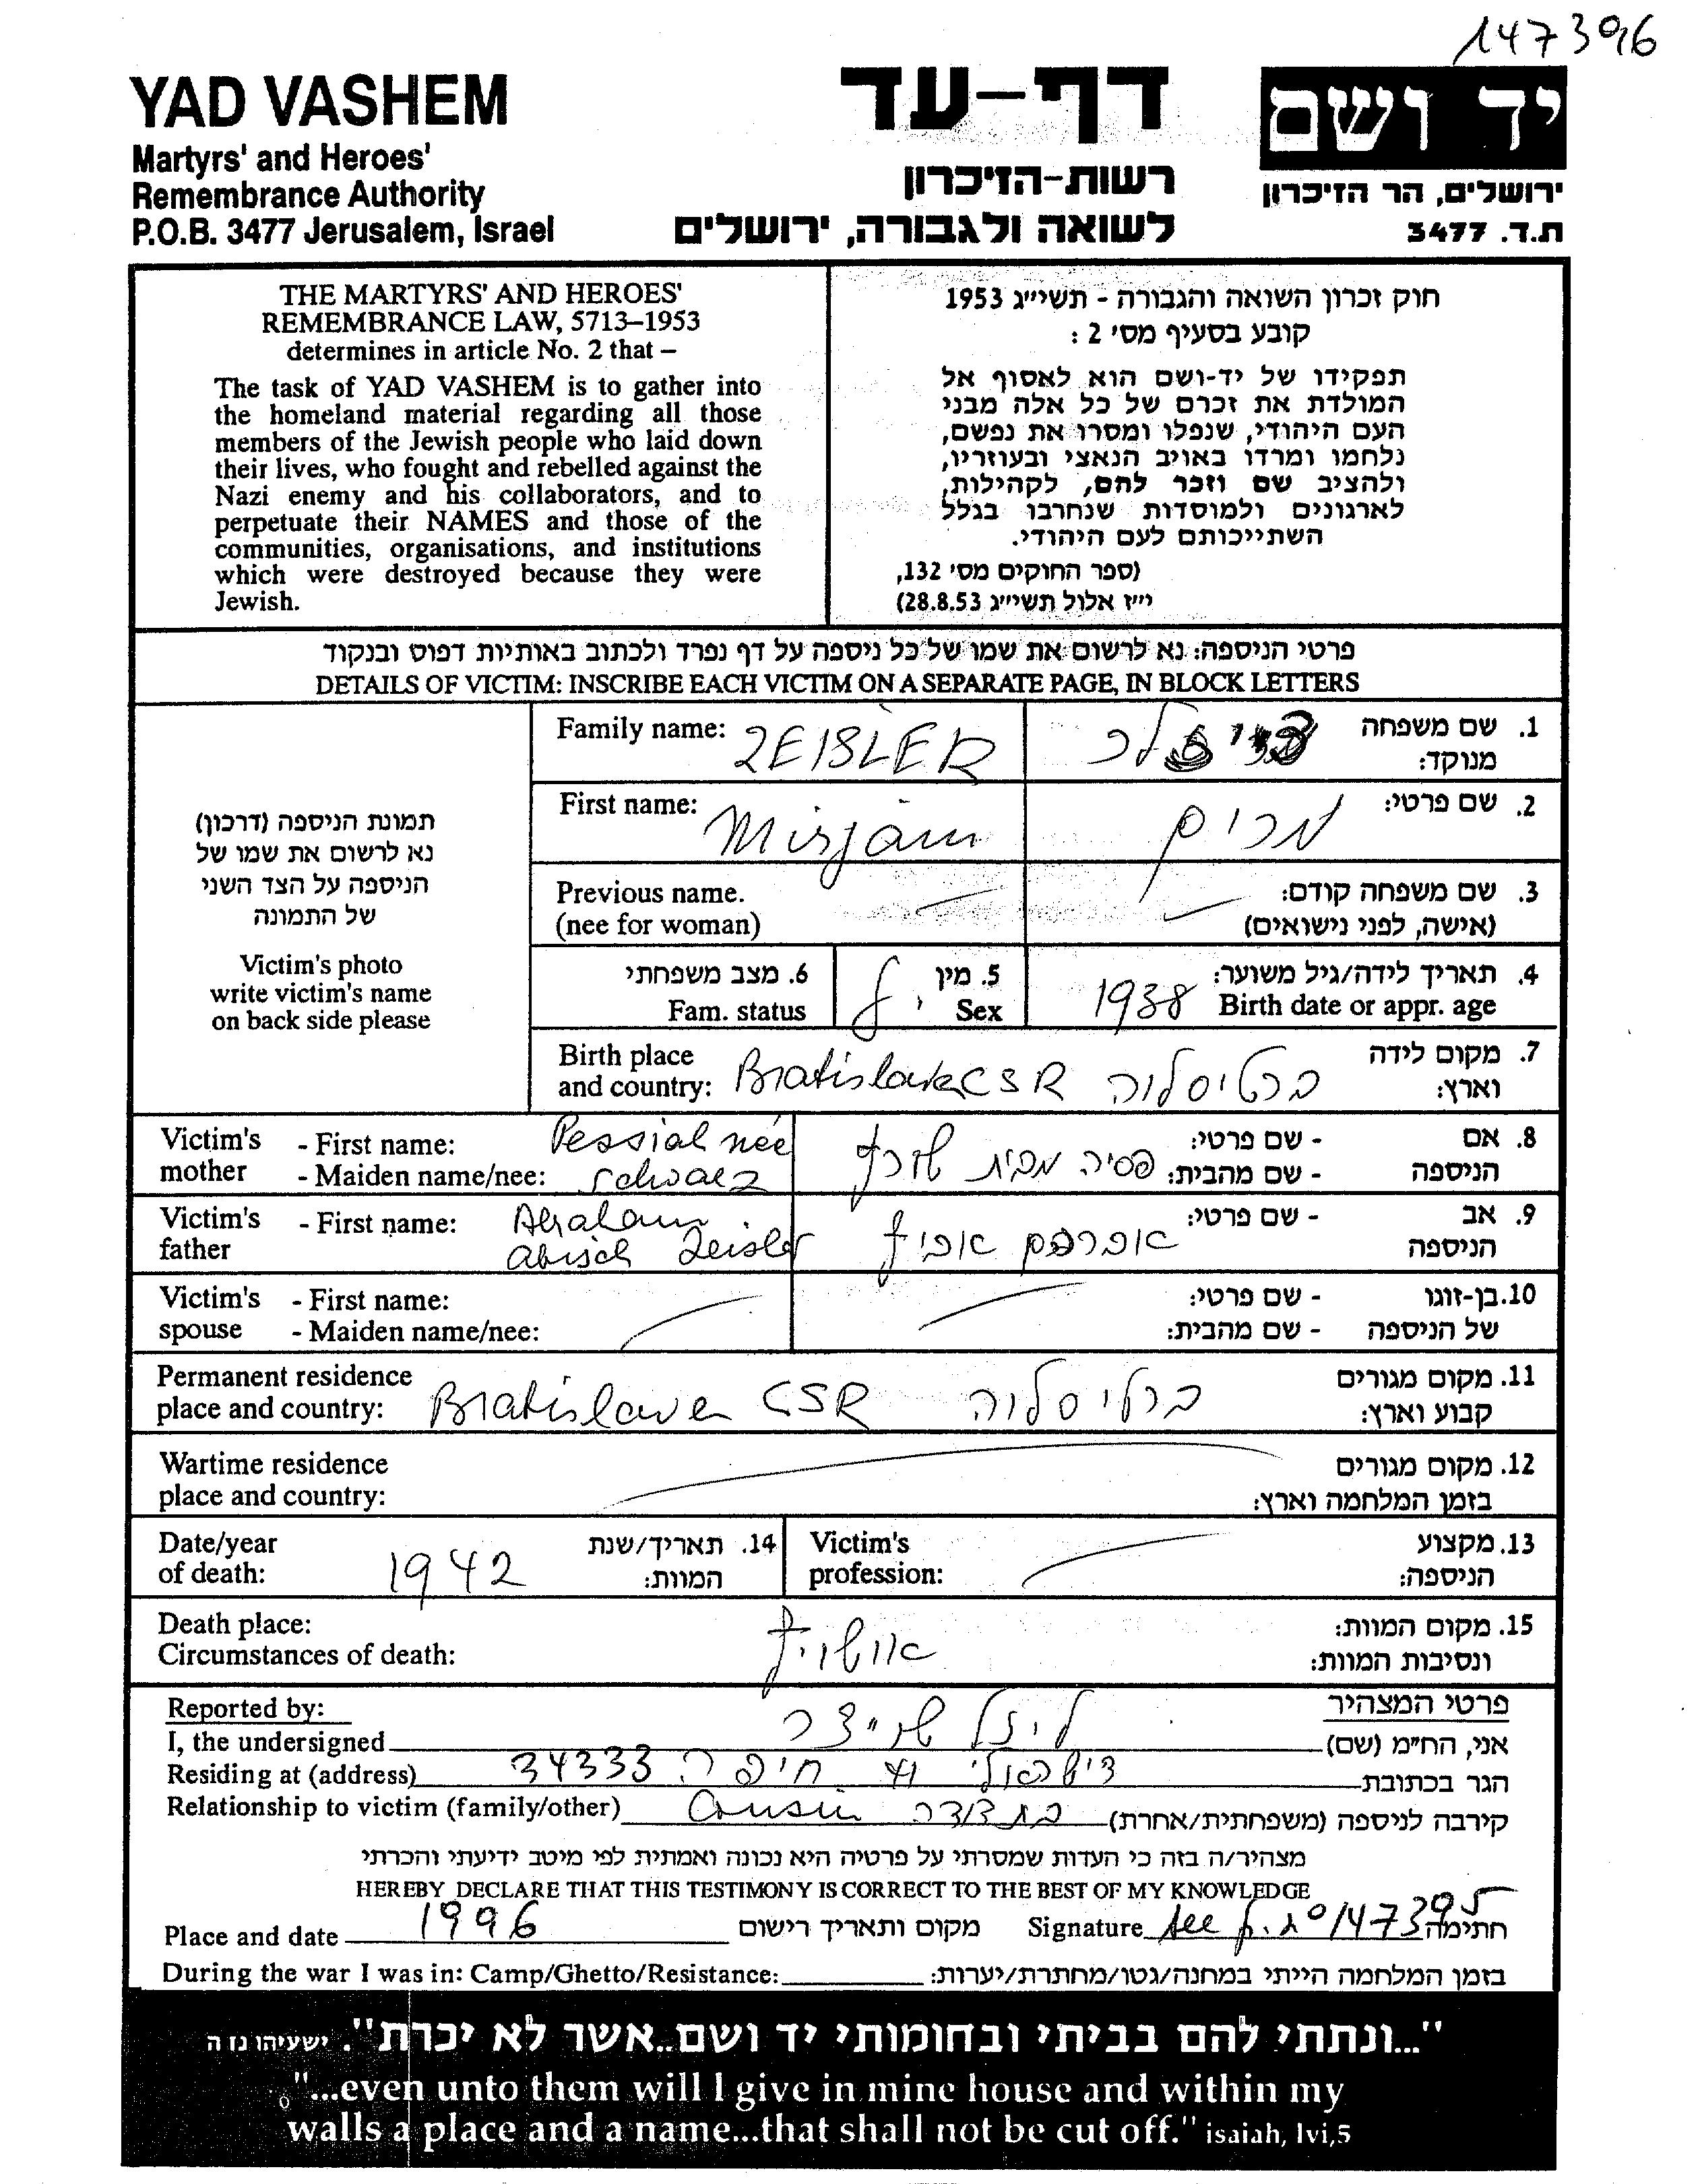 147396
YAD VASHEM
Martyrs' and Heroes'
Remembrance Authority
P.O.B. 3477 Jerusalem, Israel
דף-עד
רשות-הזיכרון
לשואה ולגבורה, ירושלים
יד ושם
ירושלים, הר הזיכרון
ת.ד. 3477
THE MARTYRS' AND HEROES'
REMEMBRANCE LAW, 5713–1953
determines in article No. 2 that –
The task of YAD VASHEM is to gather into
the homeland material regarding all those
members of the Jewish people who laid down
their lives, who fought and rebelled against the
Nazi enemy and his collaborators, and to
perpetuate their NAMES and those of the
communities, organisations, and institutions
which were destroyed because they were
Jewish.
חוק זכרון השואה והגבורה - תשי"ג 1953
קובע בסעיף מס' 2 :
תפקידו של יד-ושם הוא לאסוף אל
המולדת את זכרם של כל אלה מבני
העם היהודי, שנפלו ומסרו את נפשם,
נלחמו ומרדו באויב הנאצי ובעוזריו,
ולהציב שם וזכר להם, לקהילות,
לארגונים ולמוסדות שנחרבו בגלל
השתייכותם לעם היהודי.
(ספר החוקים מס' 132,
י"ז אלול תשי"ג 28.8.53)
פרטי הניספה: נא לרשום את שמו של כל ניספה על דף נפרד ולכתוב באותיות דפוס ובנקוד
DETAILS OF VICTIM: INSCRIBE EACH VICTIM ON A SEPARATE PAGE, IN BLOCK LETTERS
תמונת הניספה (דרכון)
נא לרשום את שמו של
הניספה על הצד השני
של התמונה
Victim's photo
write victim's name
on back side please
Family name: ZEISLER 1. שם משפחה
מנוקד:
First name: Mirjam מרים 2. שם פרטי:
Previous name. 3. שם משפחה קודם:
(nee for woman) (אישה, לפני נישואים)
6. מצב משפחתי 5. מין 4. תאריך לידה/גיל משוער:
Fam. status Sex 1938 Birth date or appr. age
Birth place 7. מקום לידה
and country: Bratislava CSR ברטיסלוה וארץ:
Victim's - First name: Pessial neé - שם פרטי: 8. אם
mother - Maiden name/nee: Schwarz פסיה מבית שורץ - שם מהבית: הניספה
Victim's - First name: Abraham - שם פרטי: 9. אב
father Abisch Zeisler אברהם אביש הניספה
Victim's - First name: - שם פרטי: 10. בן-זוגו
spouse - Maiden name/nee: - שם מהבית: של הניספה
Permanent residence 11. מקום מגורים
place and country: Bratislava CSR ברטיסלוה קבוע וארץ:
Wartime residence 12. מקום מגורים
place and country: בזמן המלחמה וארץ:
Date/year 14. תאריך/שנת Victim's 13. מקצוע
of death: 1942 המוות: profession: הניספה:
Death place: 15. מקום המוות:
Circumstances of death: אושויץ ונסיבות המוות:
Reported by: פרטי המצהיר
I, the undersigned שנייצר אני, הח"מ (שם)
Residing at (address) 34333 חיפה הגר בכתובת
Relationship to victim (family/other) Cousin בת דודה קירבה לניספה (משפחתית/אחרת)
מצהיר/ה בזה כי העדות שמסרתי על פרטיה היא נכונה ואמתית לפי מיטב ידיעתי והכרתי
HEREBY DECLARE THAT THIS TESTIMONY IS CORRECT TO THE BEST OF MY KNOWLEDGE
Place and date 1996 מקום ותאריך רישום Signature see p. no 147395 חתימה
During the war I was in: Camp/Ghetto/Resistance: בזמן המלחמה הייתי במחנה/גטו/מחתרת/יערות:
"...ונתתי להם בביתי ובחומותי יד ושם..אשר לא יכרת". ישעיהו נו ה
"...even unto them will I give in mine house and within my
walls a place and a name...that shall not be cut off." isaiah, lvi,5